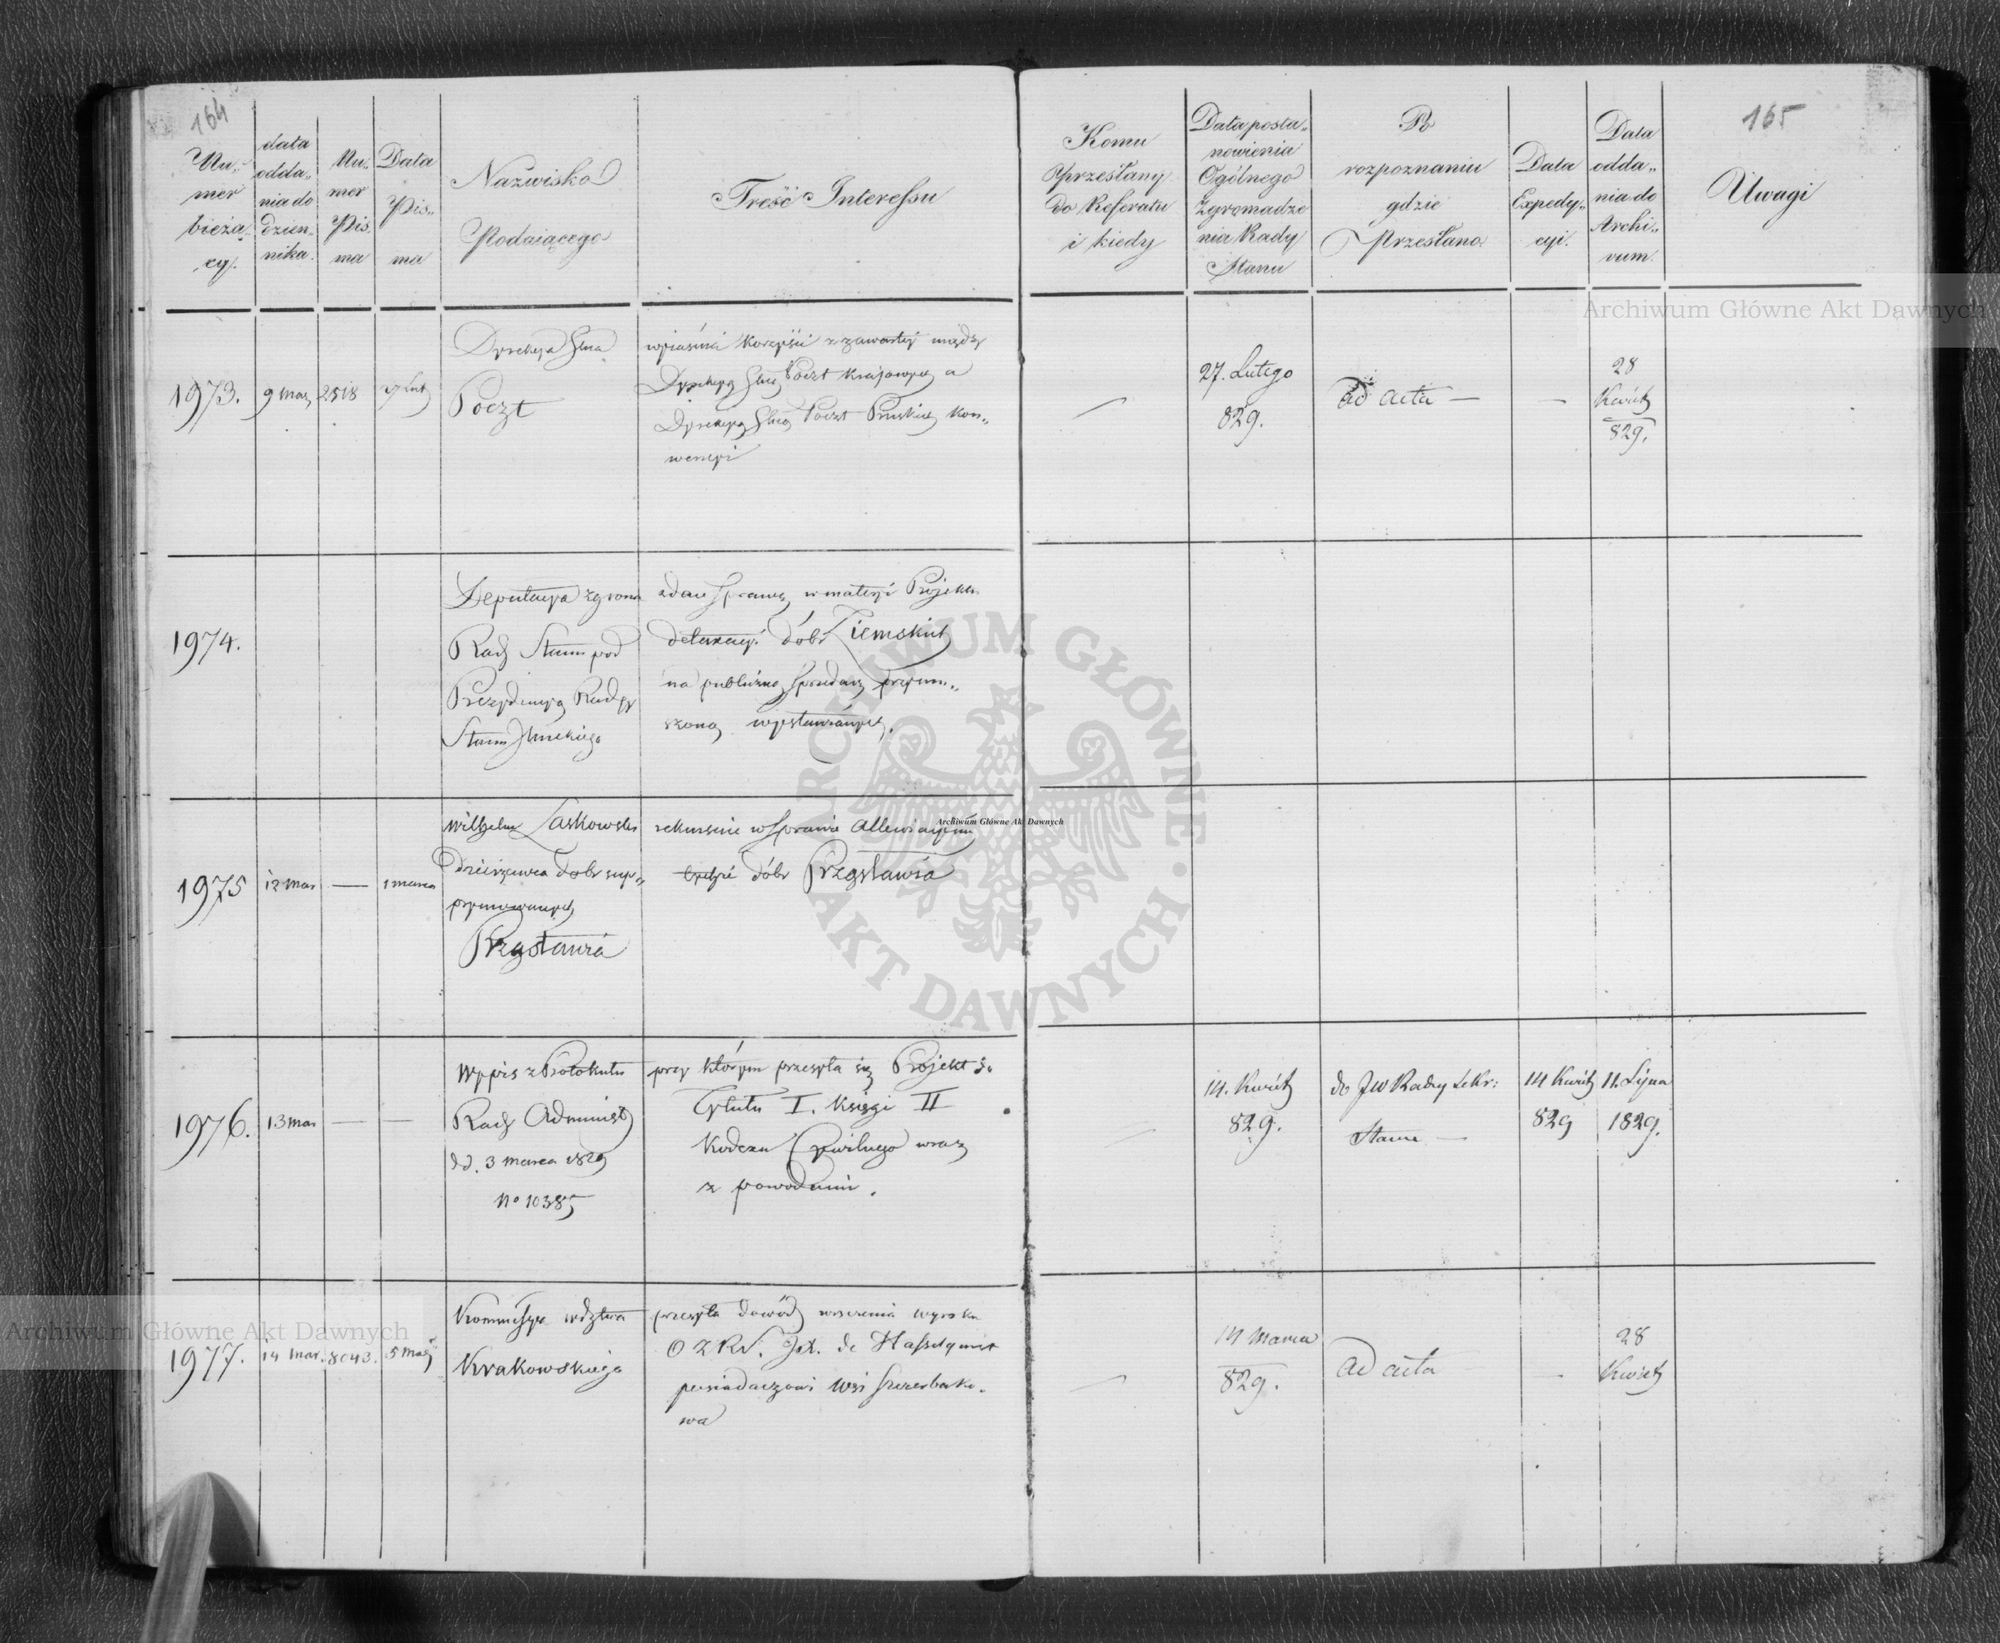 164
Nu-
mer
bieżą-
cy.
data
odda-
nia do
dzien-
nika.
Nu-
mer
Pis-
ma
Data
Pis-
ma
Nazwisko
Podaiącego
Treść Interessu
Komu
Przesłany
do Referatu
i kiedy
Data posta-
nowienia
Ogólnego
Zgromadze
nia Rady
Stanu
Po
rozpoznaniu
gdzie
Przesłano
Data
Expedy-
cyi.
Data
odda-
nia do
Archi-
vum.
165
Uwagi
1973.
9 mar
2518
7 Lut
Dyrekcya Głna
Poczt
wyiaśnia korzyści z zawartey między
Dyrekcyą Głną Poczt Kraiowych a
Dyrekcyą Głną Poczt Pruskich kon-
wencyi
27. Lutego
829.
ad acta —
—
28
Kwiet
829.
1974.
Deputacya zgrom
Rady Stanu pod
Prezydencyą Radcy
Stanu
zdaie sprawę w materyi Projektu
detaxacyi dóbr Ziemskich
na publiczną sprzedaż
wystawionych.
1975
12 mar
—
1 marca
Wilhelm Laskowski
dzierżawca dobr sup-
prymowanych
Przystawia
rekursuie w sprawie
tychże dóbr Przystawia
1976.
13 mar
—
—
Wypis z Protokułu
Rady Administ
dd. 3 marca 1829
No 10385
przy którym przesyła się Projekt do
Tytułu I. Księgi II
Kodexu Cywilnego wraz
z powodami.
14. Kwiet
829.
do JW Radcy Sekr:
Stanu —
14 Kwiet
829
11. Lipca
1829.
1977.
14 mar.
8043.
5 Mar
Kommissya wdztwa
Krakowskiego
przesyła dowód wręczenia wyroku
posiadaczowi wsi Szczerbako-
wa
14 Marca
829.
ad acta
—
28
Kwiet
Archiwum Główne Akt Dawnych
Archiwum Główne Akt Dawnych
Archiwum Główne Akt Dawnych
ARCHIWUM GŁÓWNE AKT DAWNYCH